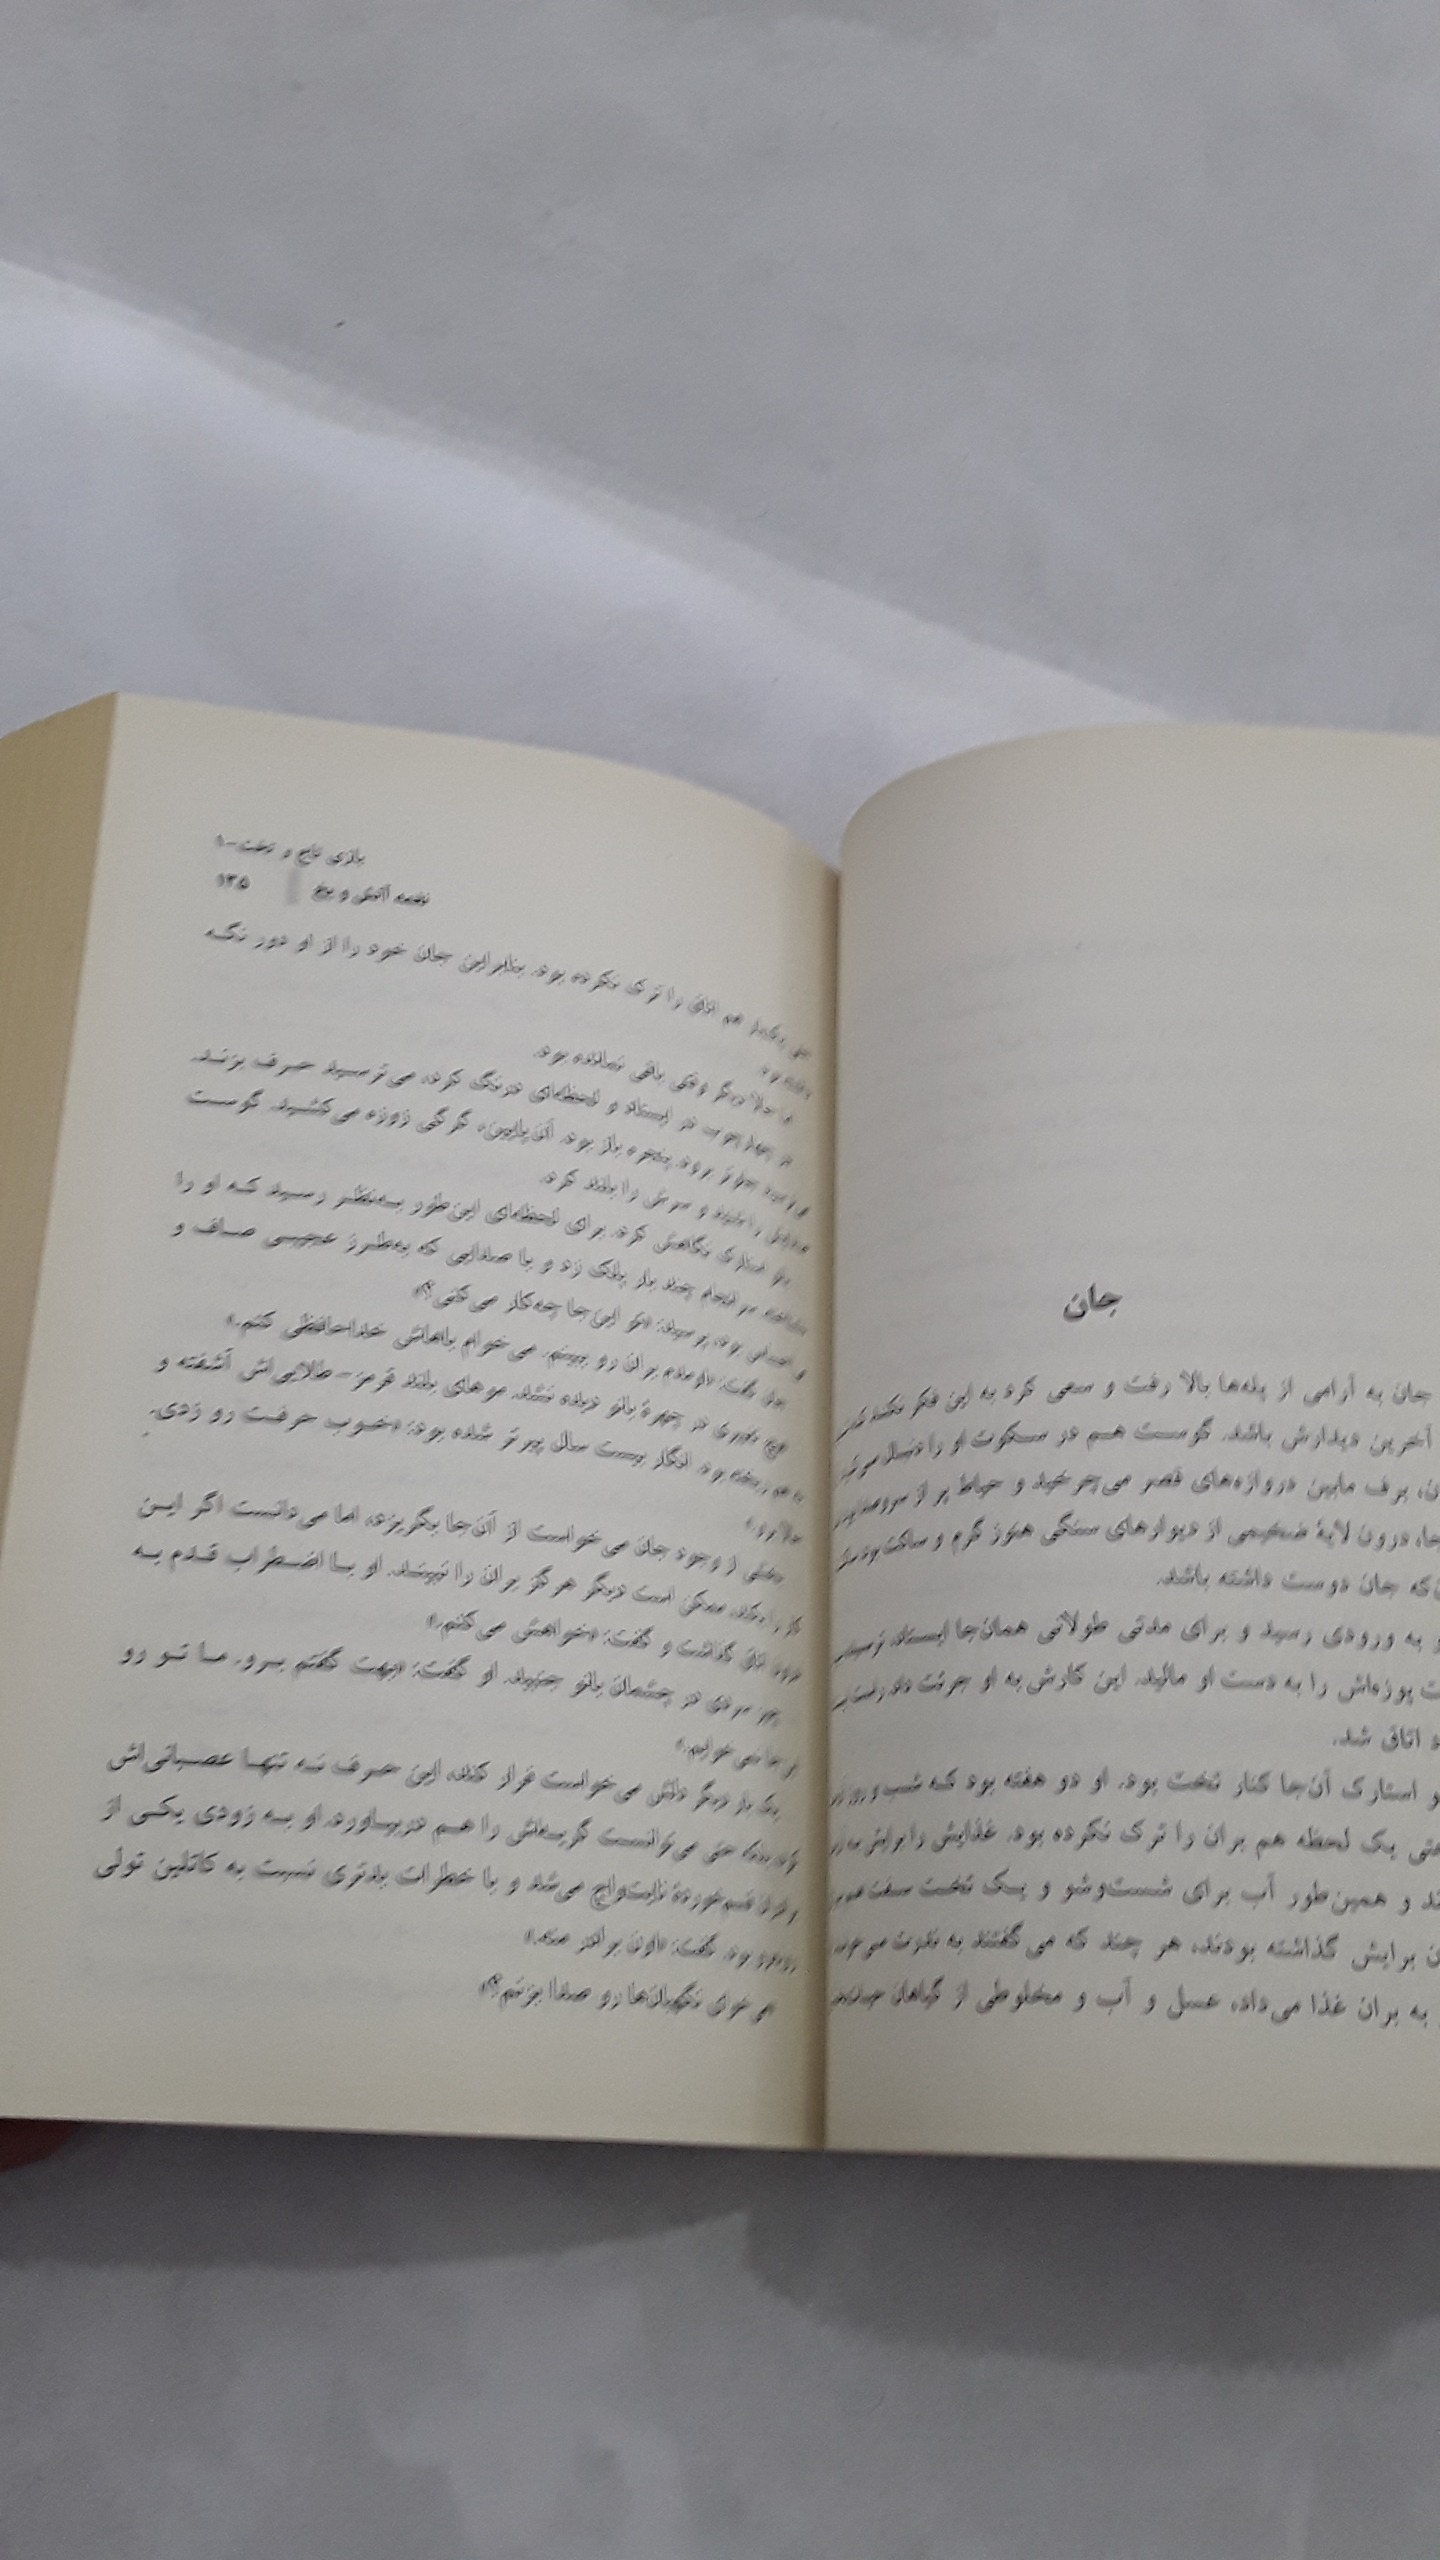 جان
جان به آرامی از پله‌ها بالا رفت و سعی کرد به این فکر نکند
آخرین دیدارش باشد. گوست هم در سکوت او را دنبال
برف مابین دروازه‌های قصر می‌چرخید و حیاط پر از
درون لایهٔ ضخیمی از دیوارهای سنگی هنوز گرم و ساکت بود
جان دوست داشته باشد.
به ورودی رسید و برای مدتی طولانی همان‌جا ایستاد،
پوزه‌اش را به دست او مالید. این کارش به او جرئت داد.
اتاق شد.
استارک آن‌جا کنار تخت بود. او دو هفته بود که شب و روز
یک لحظه هم بران را ترک نکرده بود. غذایش را برایش
و همین‌طور آب برای شست‌وشو و یک تخت سفت
برایش گذاشته بودند، هر چند که می‌گفتند به ندرت
به بران غذا می‌داد، عسل و آب و مخلوطی از گیاهان
بازی تاج و تخت-۱
نغمه آتش و یخ ۱۳۵
هم اتاق را ترک نکرده بود. بنابراین جان خود را از او دور نگه
دیگر وقتی باقی نمانده بود.
در ایستاد و لحظه‌ای درنگ کرد، می‌ترسید حرف بزند،
برود. پنجره باز بود. آن پایین، گرگی زوزه می‌کشید. گوست
را شنید و سرش را بلند کرد.
استارک نگاهش کرد. برای لحظه‌ای این‌طور به‌نظر رسید که او را
سرانجام چند بار پلک زد و با صدایی که به‌طرز عجیبی صاف و
بود، پرسید: «تو این‌جا چه‌کار می‌کنی؟»
جان گفت: «اومدم بران رو ببینم. می‌خوام باهاش خداحافظی کنم.»
هیچ تغییری در چهرهٔ بانو دیده نشد. موهای بلند قرمز-طلایی‌اش آشفته و
بود. انگار بیست سال پیرتر شده بود: «خوب حرفت رو زدی.
حالا برو.»
بخشی از وجود جان می‌خواست از آن‌جا بگریزد، اما می‌دانست اگر این
کار را بکند، ممکن است دیگر هرگز بران را نبیند. او با اضطراب قدم به
درون اتاق گذاشت و گفت: «خواهش می‌کنم.»
چیز سردی در چشمان بانو جنبید. او گفت: «بهت گفتم برو. ما تو رو
این‌جا نمی‌خوایم.»
یک بار دیگر دلش می‌خواست فرار کند، این حرف نه تنها عصبانی‌اش
حتی می‌توانست گریه‌اش را هم دربیاورد. او به زودی یکی از
قسم‌خوردهٔ نایت‌واچ می‌شد و با خطرات بدتری نسبت به کاتلین تولی
بود. گفت: «اون برادر منه.»
می‌خوای نگهبان‌ها رو صدا بزنم؟»